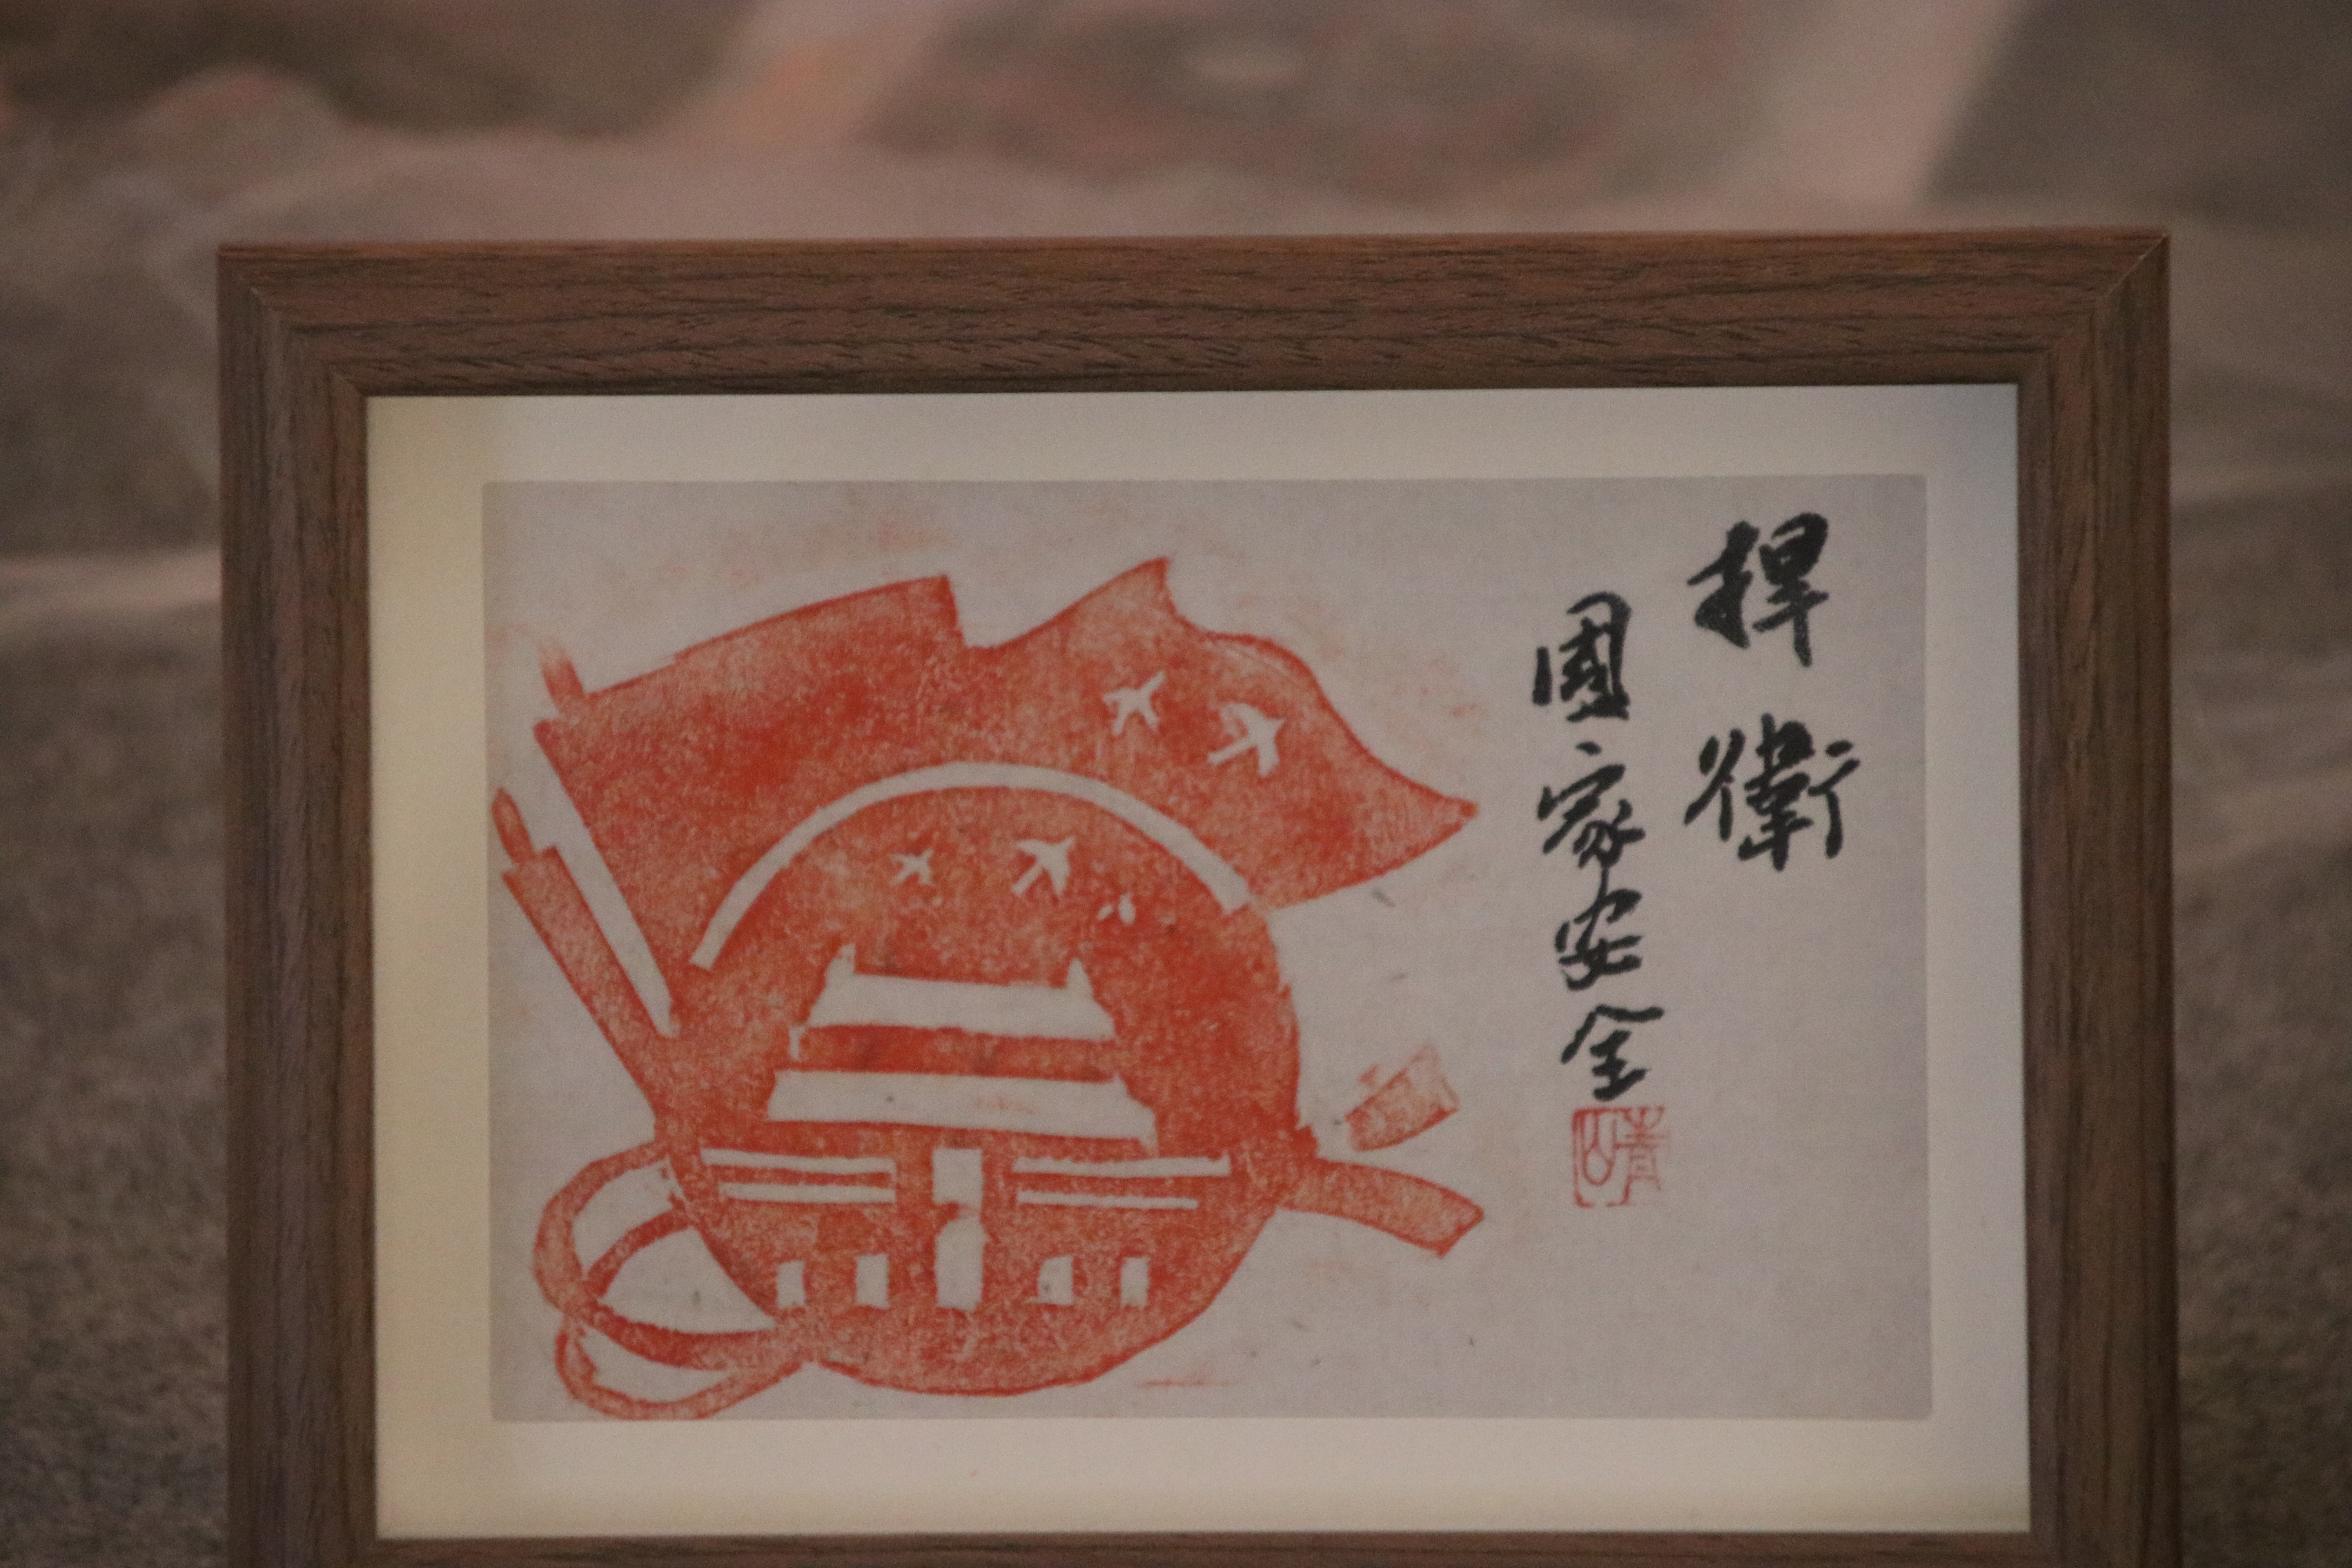 捍衛
國家安全